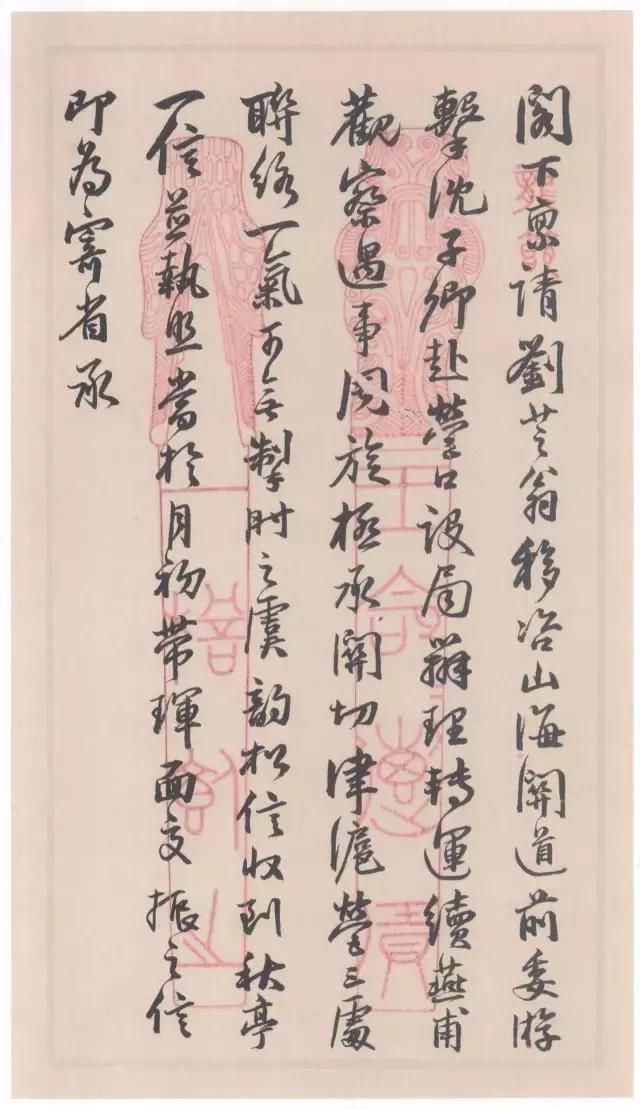 閣下稟請劉芝翁移咨山海關道前委游
擊沈子卿赴營口設局辦理轉運續燕甫
觀察遇事周旋極承關切津滬營三處
聯絡一氣可無掣肘之虞韵松信收到秋亭
一信並執照當於月初帶琿面交振之信
即為寄省承